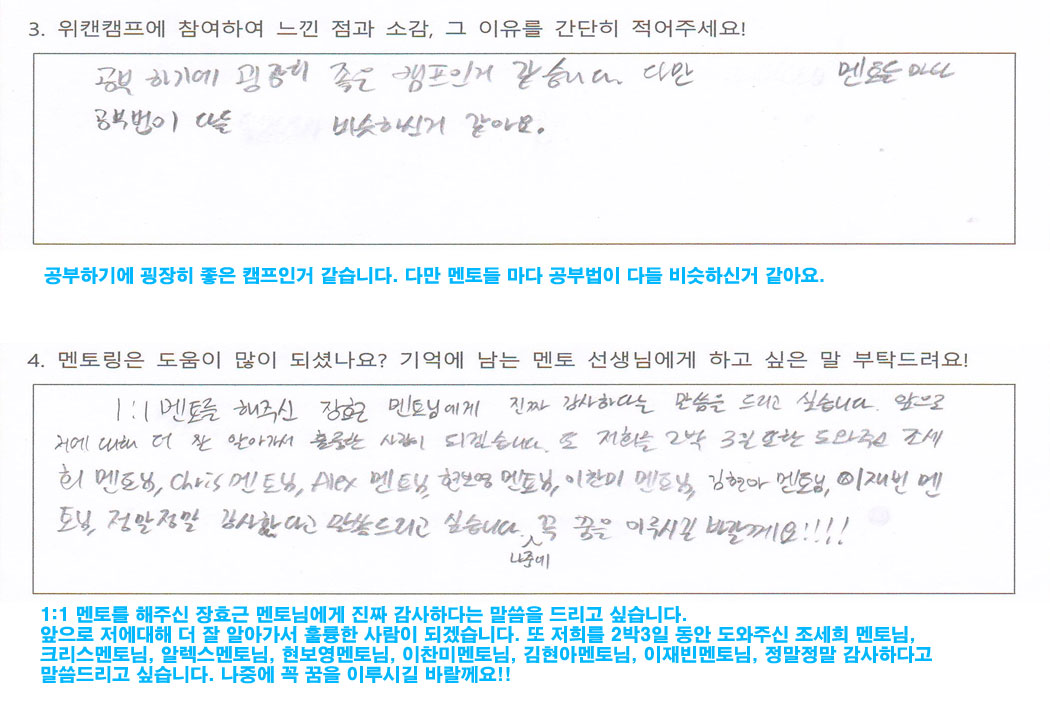 3. 위캔캠프에 참여하여 느낀 점과 소감, 그 이유를 간단히 적어주세요!
공부 하기에 굉장히 좋은 캠프인거 같습니다. 다만 멘토들 마다
공부법이 다들 비슷하신거 같아요.
공부하기에 굉장히 좋은 캠프인거 같습니다. 다만 멘토들 마다 공부법이 다들 비슷하신거 같아요.
4. 멘토링은 도움이 많이 되셨나요? 기억에 남는 멘토 선생님에게 하고 싶은 말 부탁드려요!
1:1 멘토를 해주신 장효근 멘토님에게 진짜 감사하다는 말씀을 드리고 싶습니다. 앞으로
저에 대해 더 잘 알아가서 훌륭한 사람이 되겠습니다. 또 저희를 2박 3일 도와주신 조세
희 멘토님, Chris 멘토님, Alex 멘토님, 현보영 멘토님, 이찬미 멘토님, 김현아 멘토님, 이재빈 멘
토님, 정말정말 감사하다고 말씀드리고 싶습니다. 꼭 꿈을 이루시길 바랄께요!!!!
나중에
1:1 멘토를 해주신 장효근 멘토님에게 진짜 감사하다는 말씀을 드리고 싶습니다.
앞으로 저에대해 더 잘 알아가서 훌륭한 사람이 되겠습니다. 또 저희를 2박3일 동안 도와주신 조세희 멘토님,
크리스멘토님, 알렉스멘토님, 현보영멘토님, 이찬미멘토님, 김현아멘토님, 이재빈멘토님, 정말정말 감사하다고
말씀드리고 싶습니다. 나중에 꼭 꿈을 이루시길 바랄께요!!